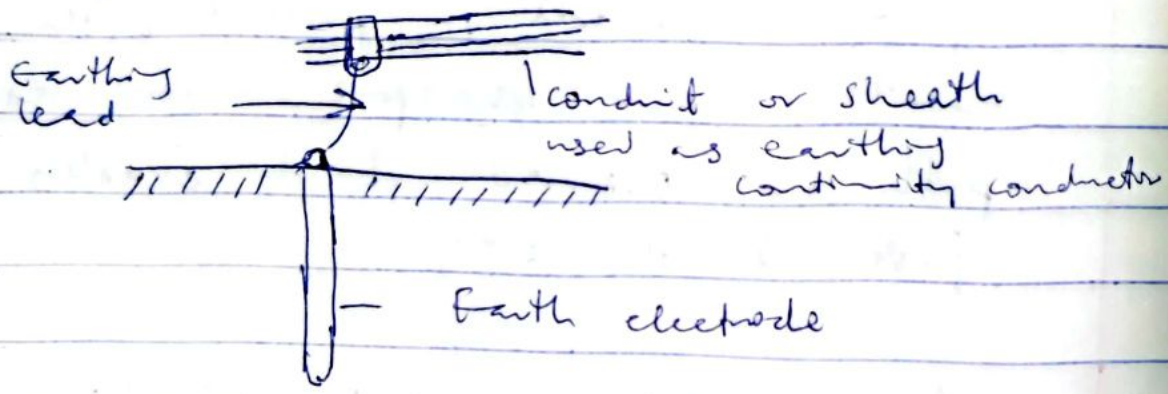 Earthing
lead
conduit or sheath
used as earthing
continuity conductor
Earth electrode